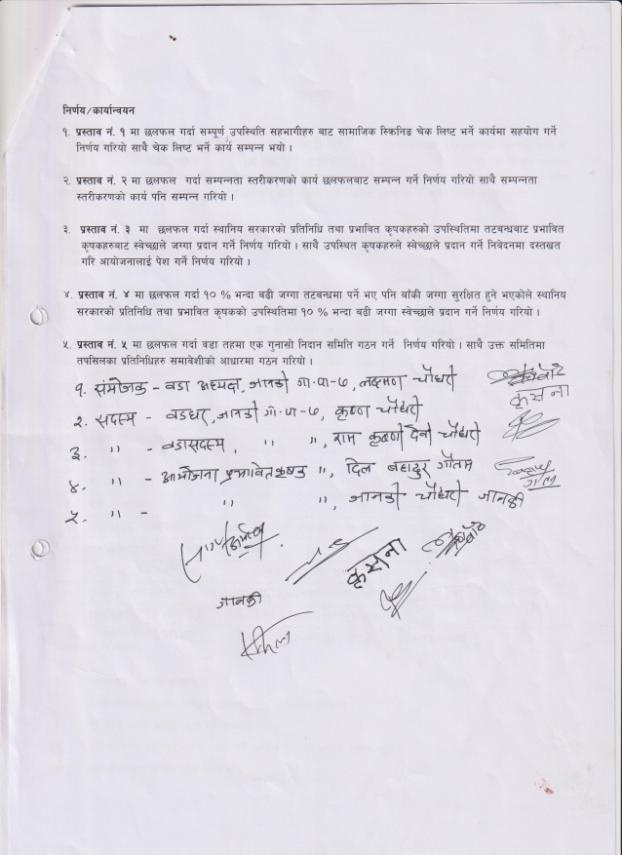 निर्णय/कार्यान्वयन
१. प्रस्ताव नं. १ मा छलफल गर्दा सम्पूर्ण उपस्थिति सहभागीहरु बाट सामाजिक स्किनिङ चेक लिष्ट भर्ने कार्यमा सहयोग गर्ने
निर्णय गरियो साथै चेक लिष्ट भर्ने कार्य सम्पन्न भयो ।
२. प्रस्ताव नं. २ मा छलफल गर्दा सम्पन्नता स्तरीकरणको कार्य छलफलबाट सम्पन्न गर्ने निर्णय गरियो साथै सम्पन्नता
स्तरीकरणको कार्य पनि सम्पन्न गरियो ।
३. प्रस्ताव नं. ३ मा छलफल गर्दा स्थानिय सरकारको प्रतिनिधि तथा प्रभावित कृषकहरुको उपस्थितिमा तटबन्धबाट प्रभावित
कृषकहरुबाट स्वेच्छाले जग्गा प्रदान गर्ने निर्णय गरियो । साथै उपस्थित कृषकहरुले स्वेच्छाले प्रदान गर्ने निवेदनमा दस्तखत
गरि आयोजनालाई पेश गर्ने निर्णय गरियो ।
४. प्रस्ताव नं. ४ मा छलफल गर्दा १० % भन्दा बढी जग्गा तटबन्धमा पर्ने भए पनि बाँकी जग्गा सुरक्षित हुने भएकोले स्थानिय
सरकारको प्रतिनिधि तथा प्रभावित कृषकको उपस्थितिमा १० % भन्दा बढी जग्गा स्वेच्छाले प्रदान गर्ने निर्णय गरियो ।
५. प्रस्ताव नं. ५ मा छलफल गर्दा वडा तहमा एक गुनासो निदान समिति गठन गर्ने निर्णय गरियो । साथै उक्त समितिमा
तपसिलका प्रतिनिधिहरु समावेशीको आधारमा गठन गरियो ।
१. संयोजक - वडा अध्यक्ष, जानकी गा.पा-७, लक्ष्मण चौधरी
कृसना
२. सदस्य - वडा जानकी गा.पा-७, कृष्ण चौधरी
३. " - वडासदस्य, " ", राम कृष्णी देवी चौधरी
४. " - आयोजना प्रभावित कृषक ", दिल बहादुर गौतम
५. " - " ", जानकी चौधरी जानकी
कृसना
जानकी